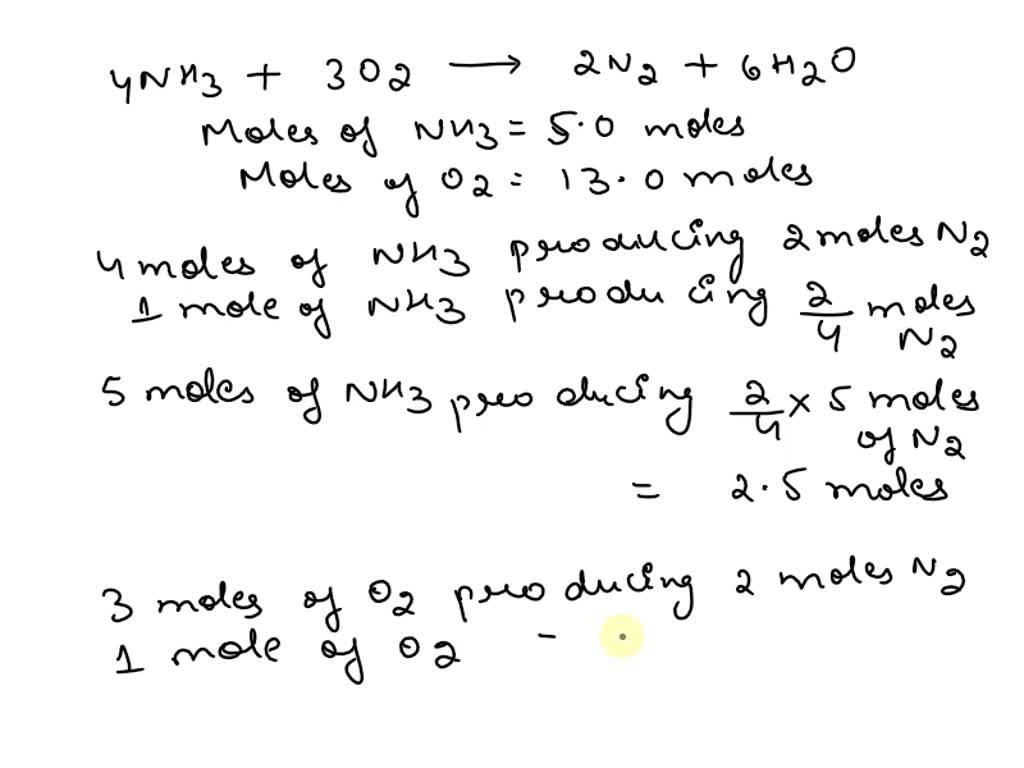 4NH3 + 3O2 ⟶ 2N2 + 6H2O
Moles of NH3 = 5.0 moles
Moles of O2 = 13.0 moles
4 moles of NH3 producing 2 moles N2
1 mole of NH3 producing 2/4 moles N2
5 moles of NH3 producing 2/4 × 5 moles of N2
= 2.5 moles
3 moles of O2 producing 2 moles N2
1 mole of O2 -